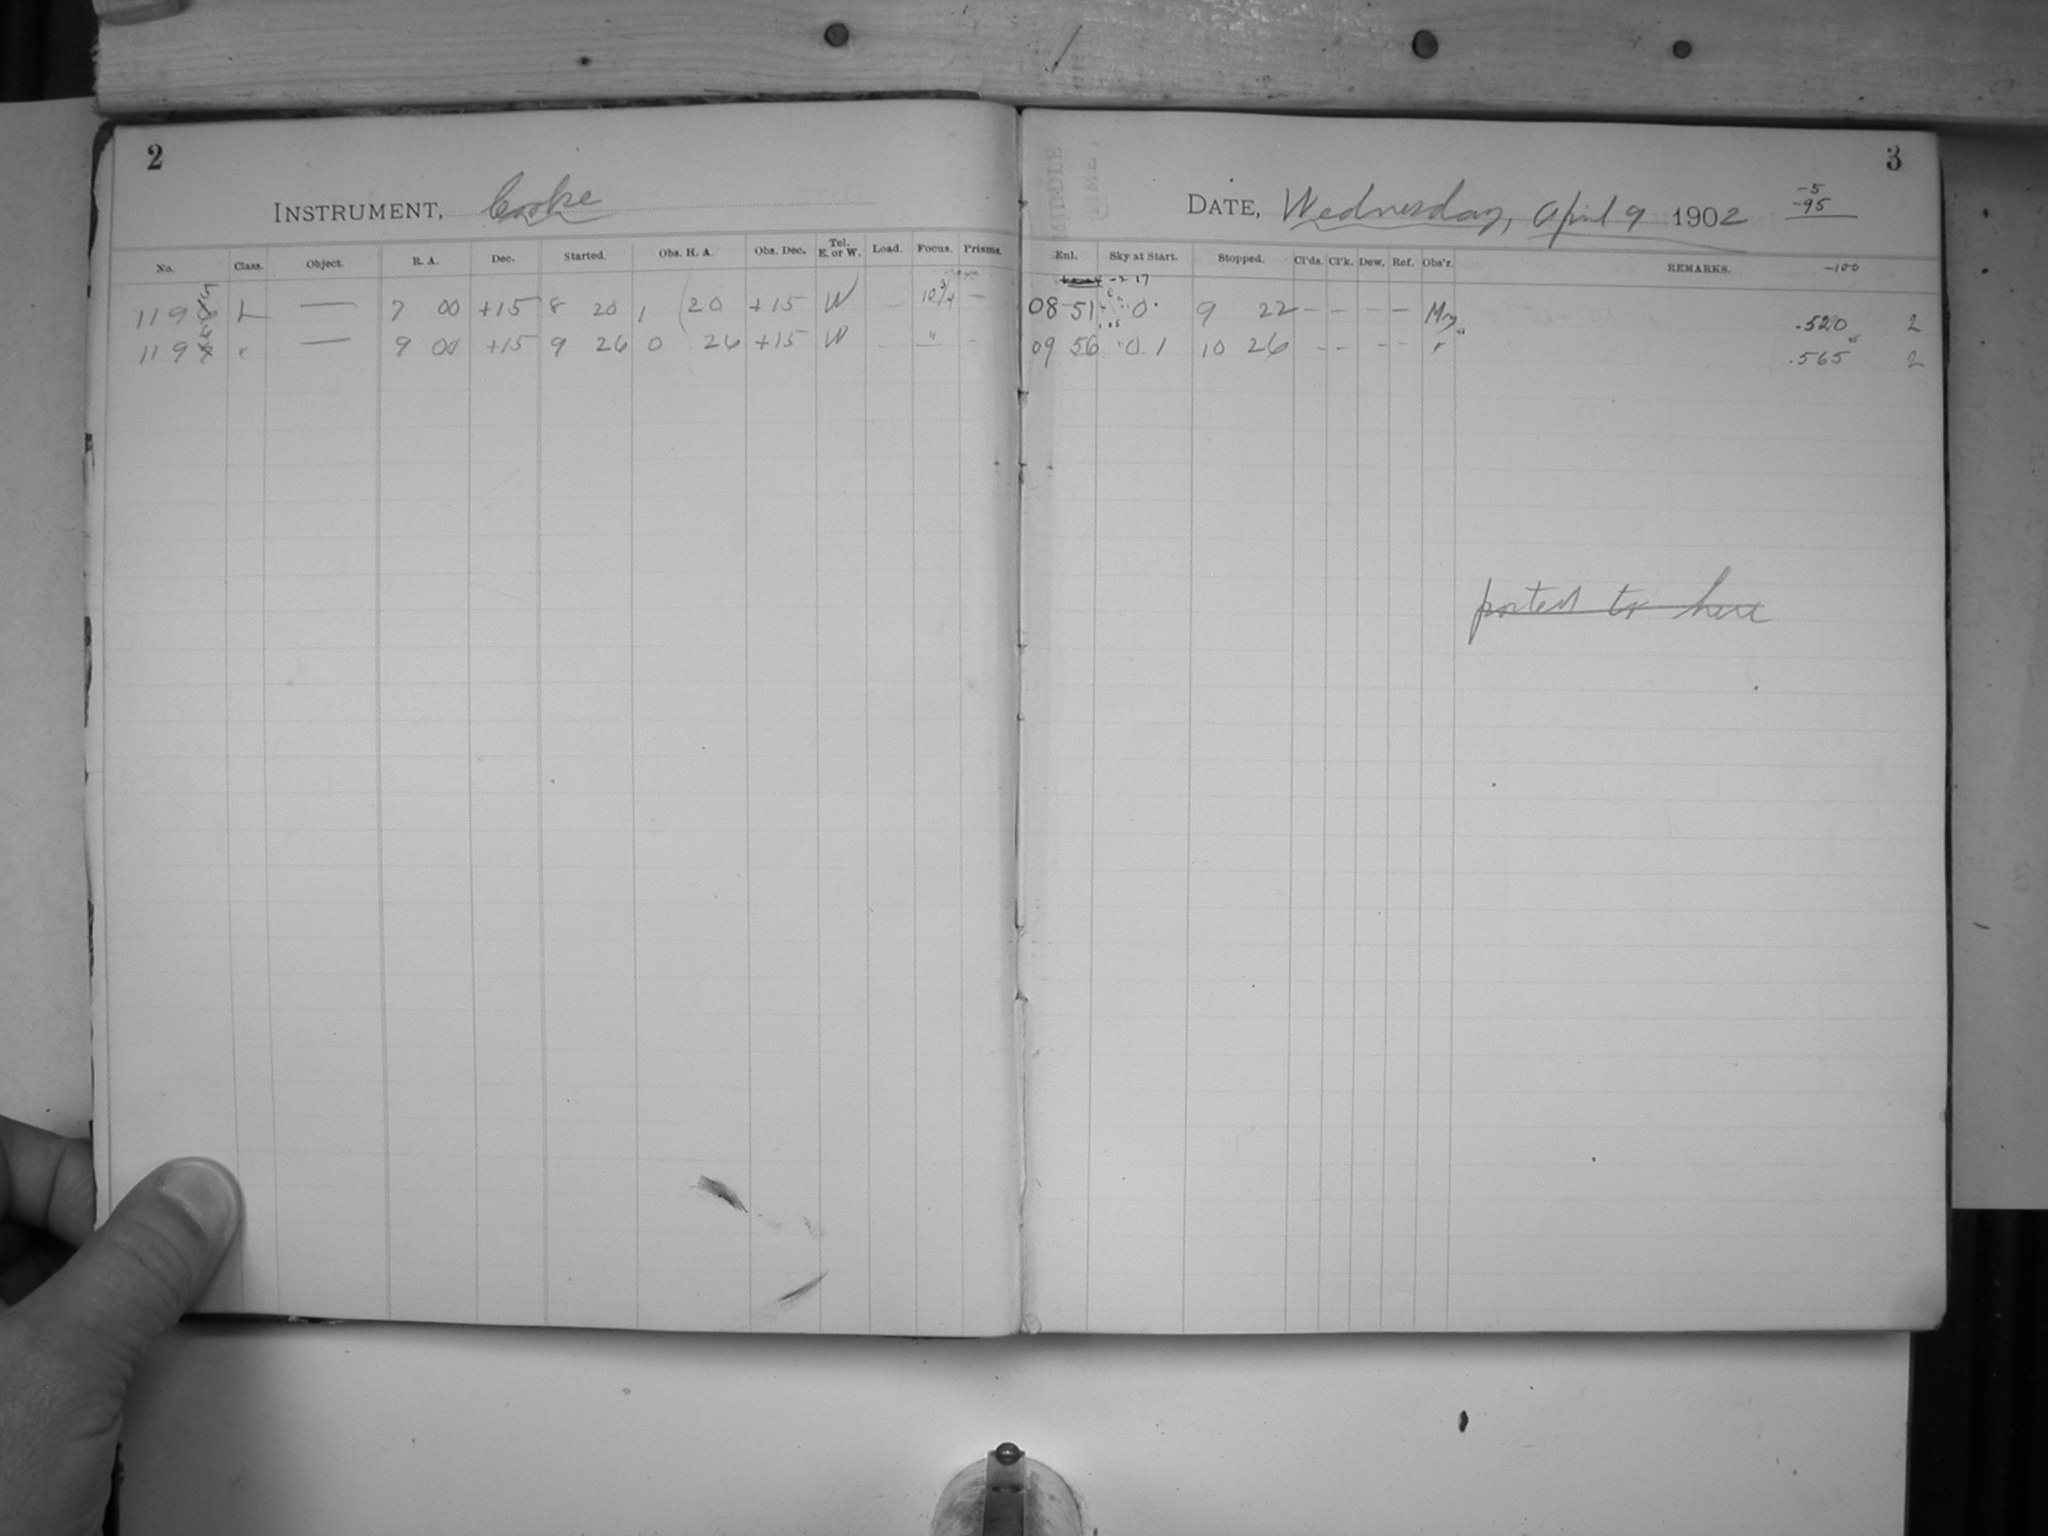 2
INSTRUMENT, Cooke
No. Class. Object. R. A. Dec. Started. Obs. H. A. Obs. Dec. Tel. E. or W. Load. Focus. Prisms.
1195 L — 7 00 +15 8 20 1 20 +15 W — 10 3/4 —
119 " — 9 00 +15 9 26 0 26 +15 W — " —
3
DATE, Wednesday, April 9 1902
-5
-95
-100
Enl. Sky at Start. Stopped. Cl'ds. Cl'k. Dew. Ref. Obs'r. REMARKS.
-2 17
08 51 0. 9 22 — — — — .520 2
09 56 0.1 10 26 — — — — " .565 2
posted to here